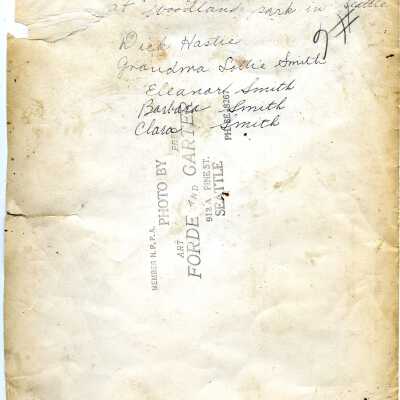 at Woodland park in Seattle
Dick Hastie
Grandma Lottie Smith
Eleanore Smith
Barbara Smith
Clara Smith
MEMBER N.P.P.A.
PHOTO BY
ART
FORDE AND CARTER
913 A PINE ST.
SEATTLE